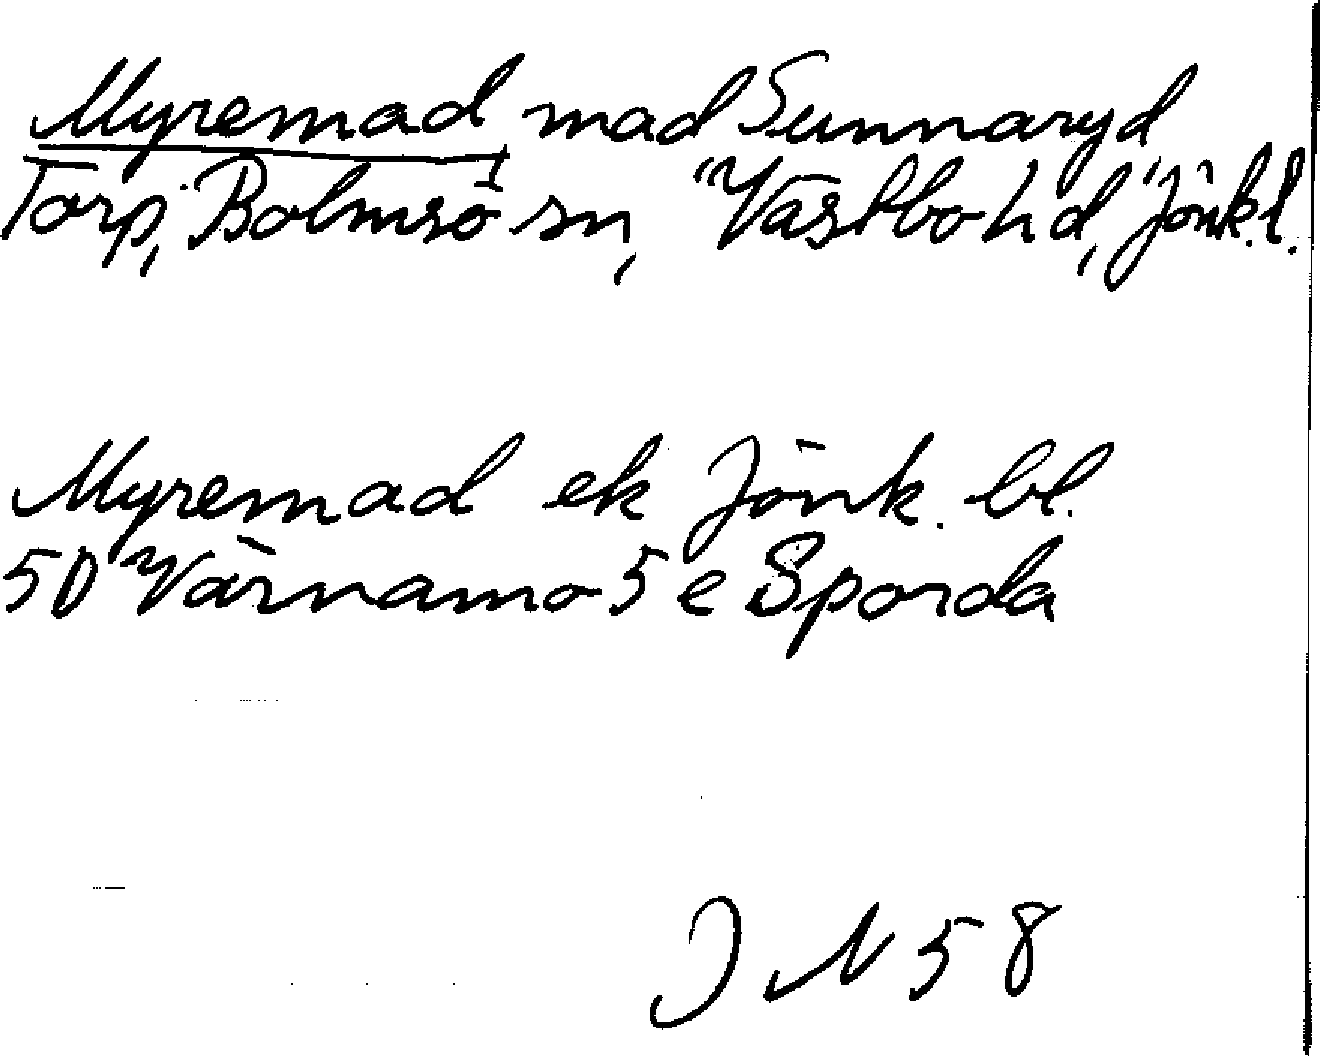 Myremad mad Sunnaryd
Torp, Bolmsö sn, Västbo hd, Jönk.l.
Myremad ek Jönk. bl.
5D Värnamo 5 e Sporda
J N 58